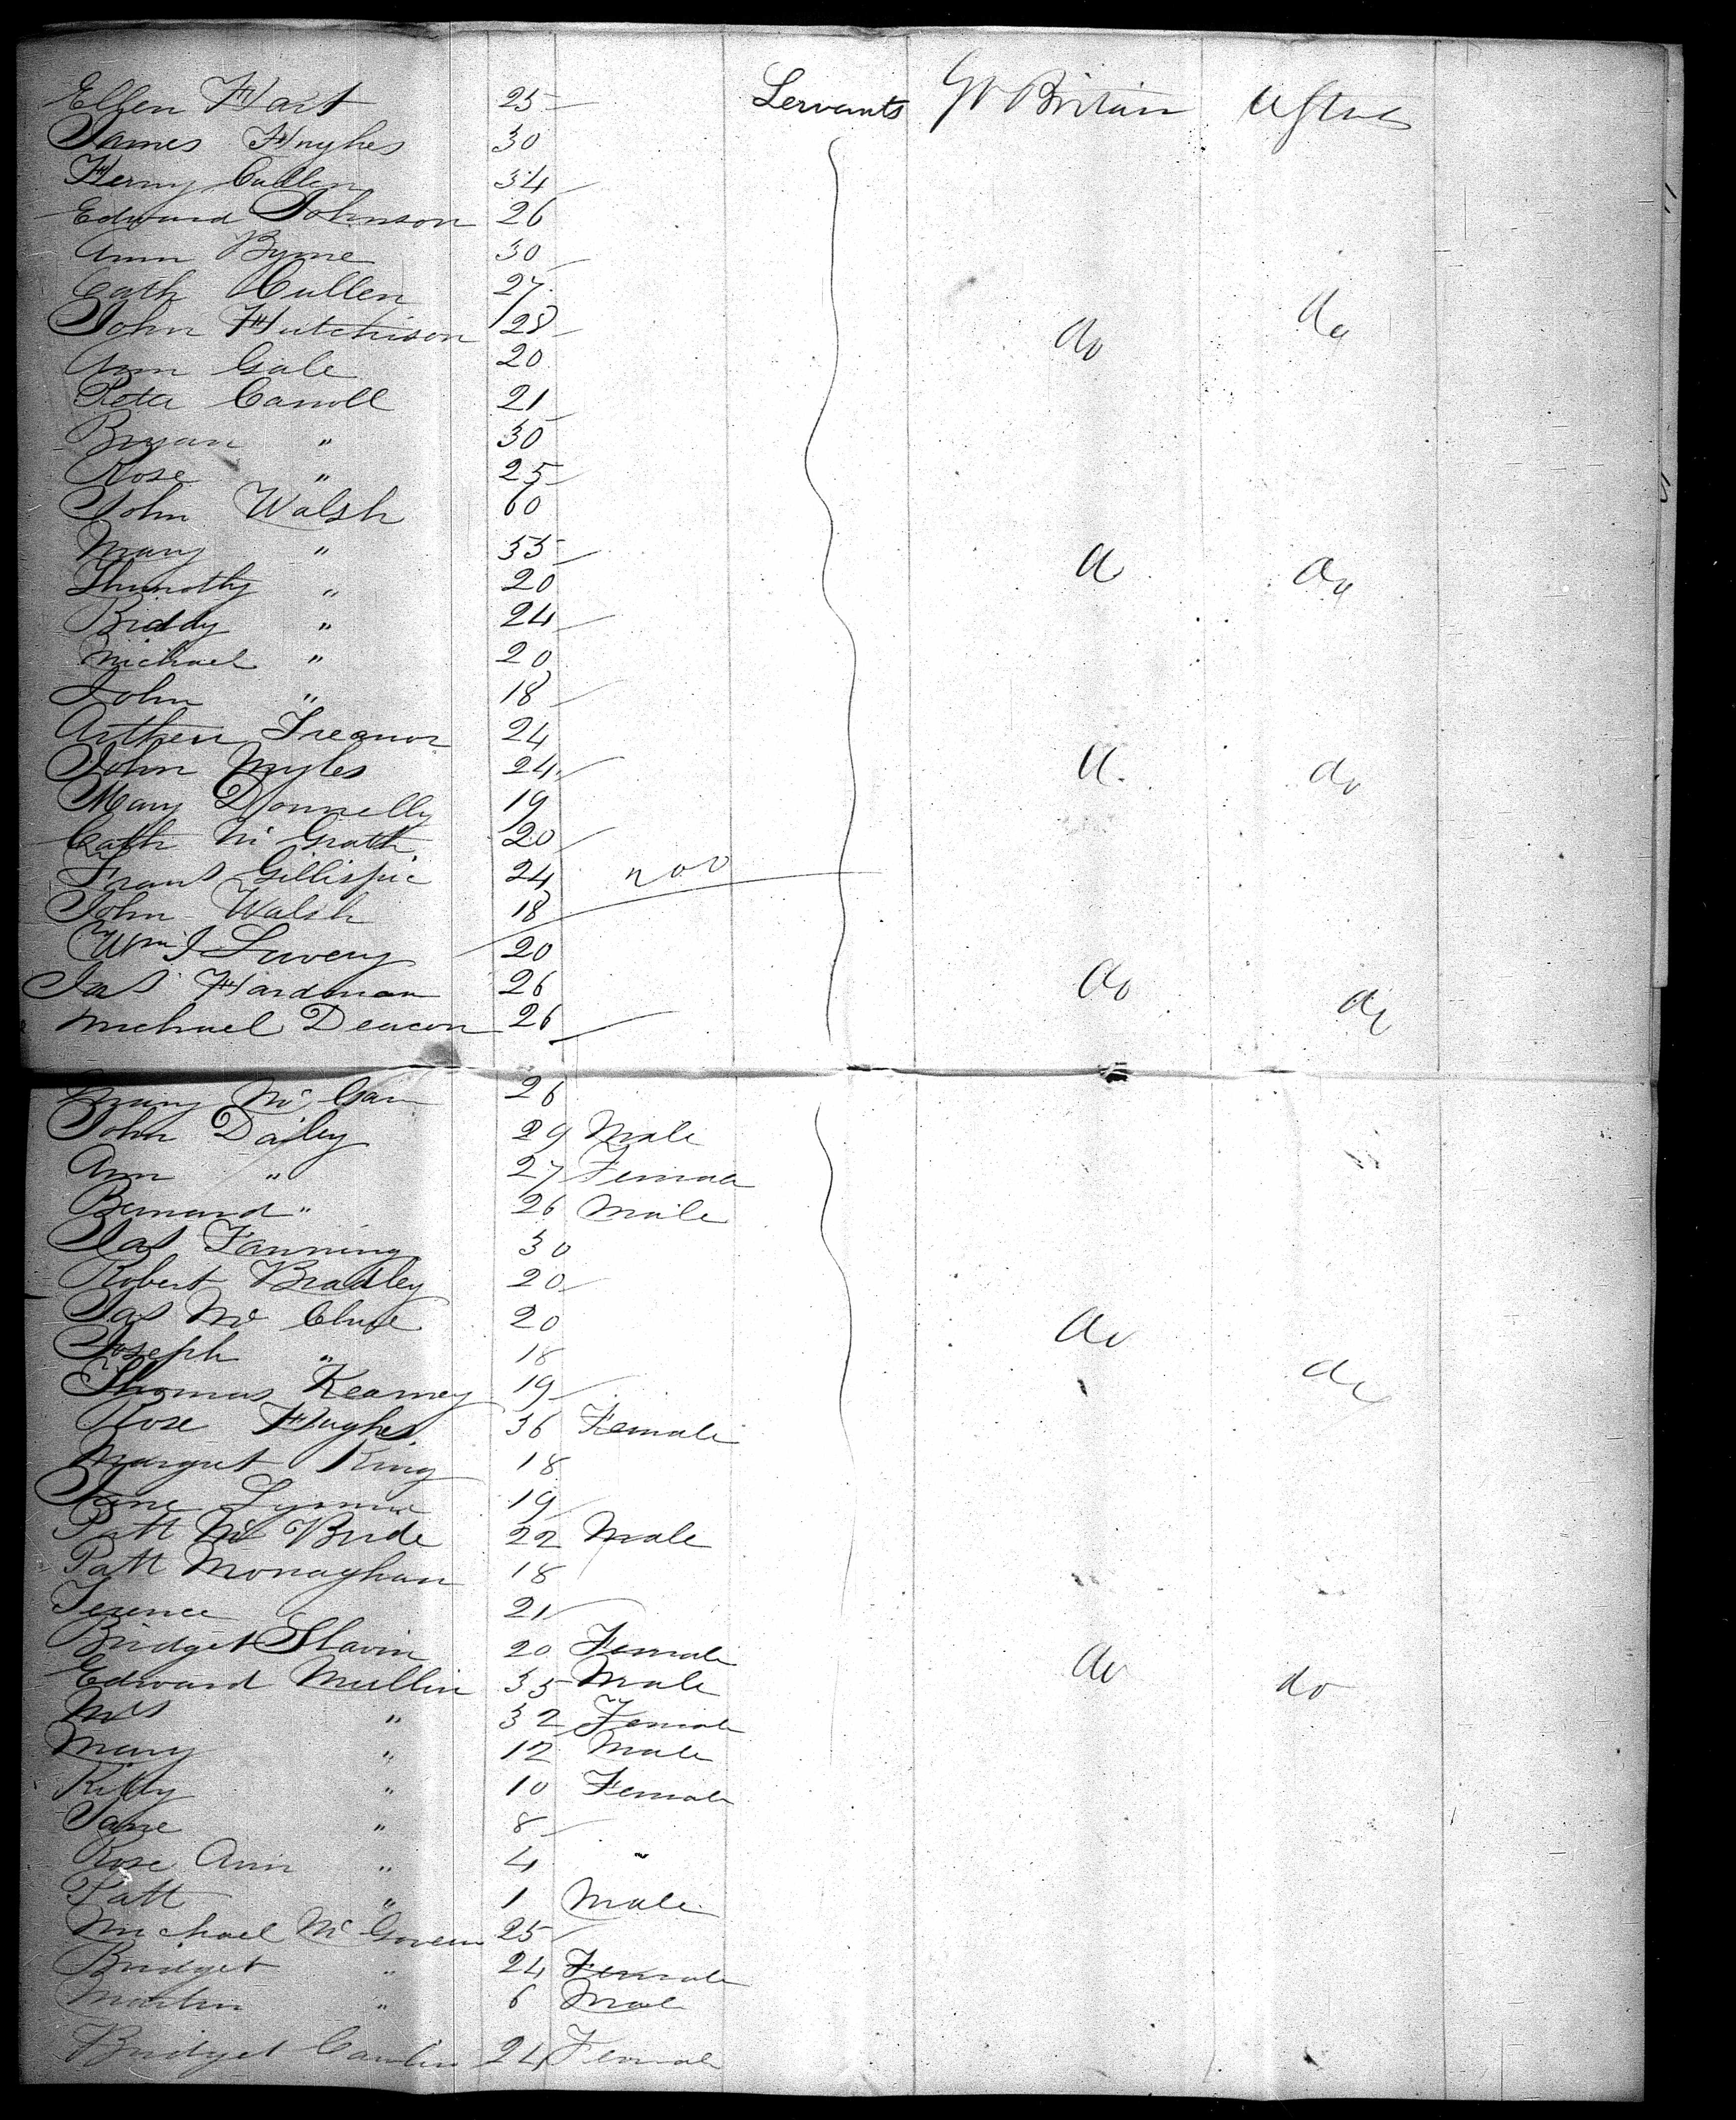 Ellen Hart 25 Servants Gt Britain U States
James Hughes 30
Henry Cullen 34
Edward Johnson 26
Ann Byrne 30
Cath Cullen 27
John Hutchison 28 do do
Ann Gale 20
Peter Carroll 21
Bryan " 30
Rose " 25
John Walsh 60
Mary " 55 do
Thimothy " 20
Biddy " 24
Michael " 20
John " 18
Arthur Treanor 24
John Myles 24 do
Mary Donnelly 19
Cath Mc Grath 20
Frans Gillispie 24
John Walsh 18
Wm J Lavery 20
Jas Hardman 26 do do
Michael Deacon 26
Mary Mc Gan 26
John Dailey 29 Male
Ann " 27 Female
Bernard " 26 Male
Jas Fanning 30
Robert Bradley 20
Jas Mc Clure 20 do
Joseph " 18 do
Thomas Kearney 19
Rose Hughes 36 Female
Margret King 18
Jane 19
Patt Mc Bride 22 Male
Patt Monaghan 18
Terence 21
Bridget Slavin 20 Female
Edward Mullin 35 Male do do
Mrs " 32 Female
Mary " 12 Male
Kitty " 10 Female
Jane " 8
Rose Ann " 4 "
Patt " 1 Male
Michael Mc Govern 25
Bridget " 24 Female
Martin " 6 Male
Bridget 24 Female